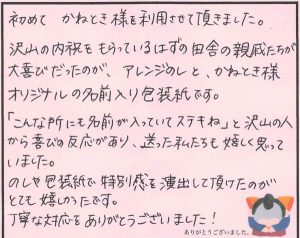 初めて かねとき様を利用させて頂きました。
沢山の内祝をもらっているはずの田舎の親戚たちが
大喜びだったのが、アレンジのしと、かねとき様
オリジナルの名前入り包装紙です。
「こんな所にも名前が入っていてステキね」と沢山の人
から喜びの反応があり、送った私たちも嬉しく思って
いました。
のしや包装紙で特別感を演出して頂けたのが
とても嬉しかったです。
丁寧な対応をありがとうございました!
ありがとうございました。